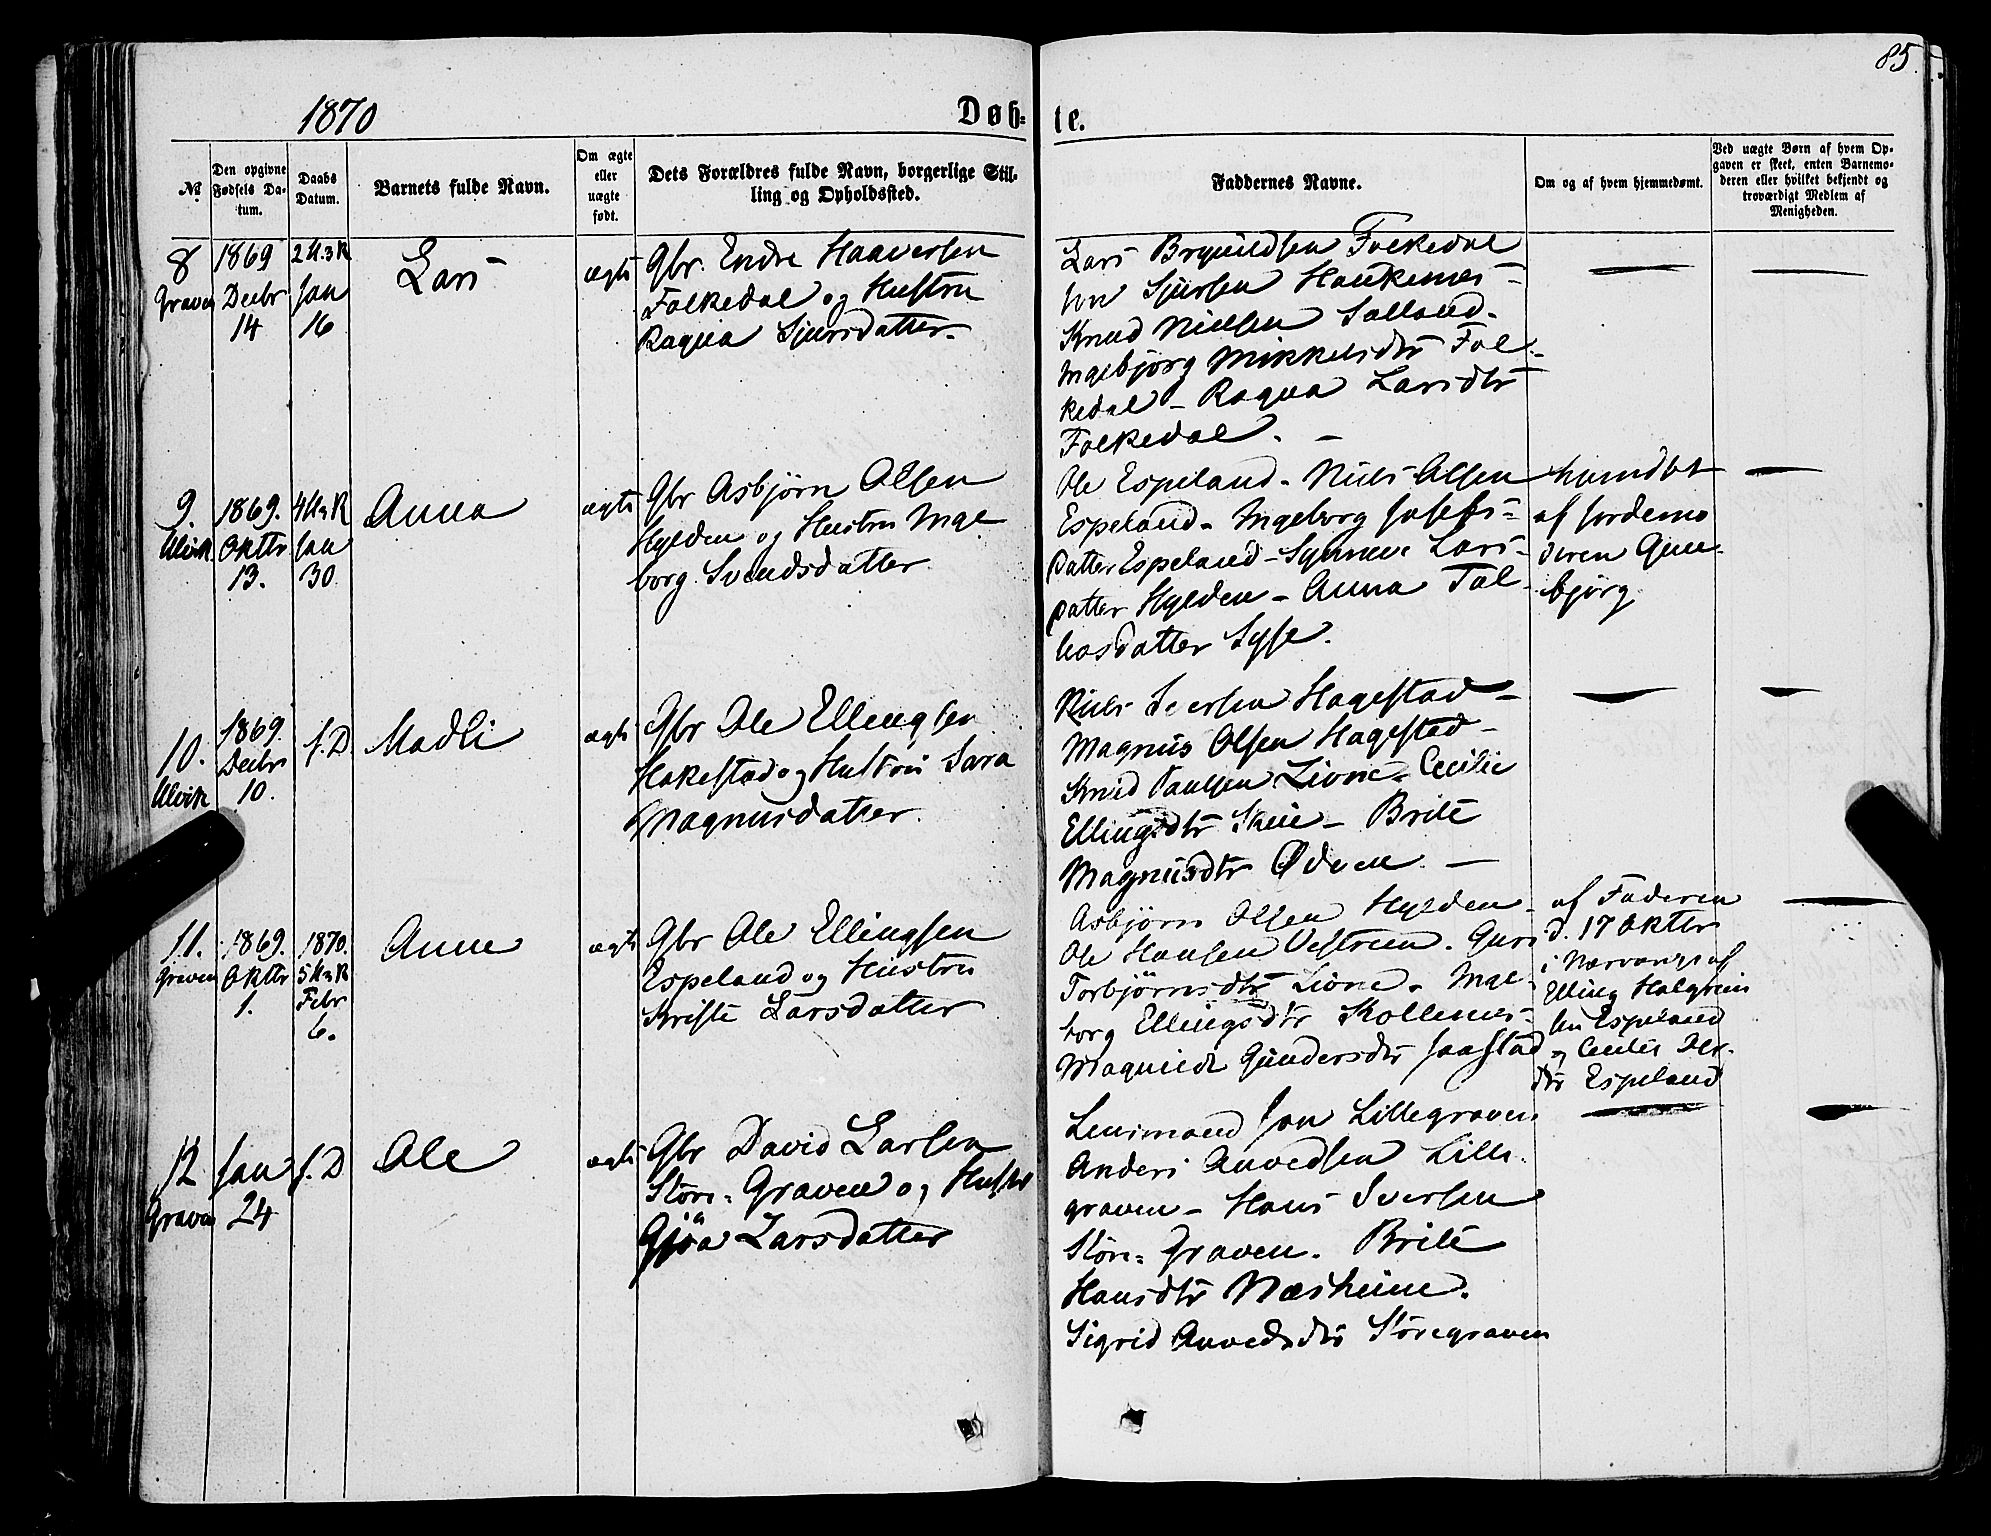 85.
1870
Døb-
te.
No
Den opgivne Fødsels Da-
tum.
Daabs
Datum.
Barnets fulde Navn.
Om ægte
eller
uægte
født.
Dets Forældres fulde Navn, borgerlige Stil-
ling og Opholdssted.
Faddernes Navne.
Om og af hvem hjemmedømt.
Ved uægte Børn af hvem Op-
gaven er skeet, enten Barnemo-
deren eller hvilket bekjendt og
troværdigt Medlem af
Menigheden.
8
Graven
1869
Decbr
14
Jan
16
Lars
ægte
Gbr. Endre Haaversen
Folkedal og Hustru
Ragna Sjursdatter.
Lars Brynildsen Folkedal
Sjursen Haukenæs-
Knud Nielsen Salland.
Ingebjørg Mikkelsdtr Fol-
kedal - Ragna Larsdtr
Folkedal. -
9.
Ulvik
1869.
Oktbr
13.
Jan
30.
Anna
ægte
Gbr Asbjørn Olsen
Hylden og Hustru Inge
borg Svendsdatter
Ole Espeland - Niels Olsen
Espeland - Ingeborg Josefs-
datter Espeland - Synneve Lars-
datter Hylden - Anna Tol-
lasdatter Syse.
hjemdøbt
af Jordemo
deren Gun-
bjørg
10.
Ulvik
1869.
Decbr
10.
s. D.
Madli
ægte
Gbr Ole Ellingsen
Hakestad og Hustru Sara
Magnusdatter.
Niels Iversen Hagestad -
Magnus Olsen Hagestad -
Knud Paulsen Lione - Cecilie
Ellingsdtr Skeie - Brite
Magnusdtr Ødven. -
11.
Graven
1869.
Oktbr
1.
1870.
Febr
6.
Anne
ægte
Gbr Ole Ellingsen
Espeland og Hustru
Kriste Larsdatter
Asbjørn Olsen Hylden -
Ole Hansen Vestrem. Guri
Torbjørnsdtr Lione - Inge-
borg Ellingsdtr Kollenes-
Magnilde Gundersdtr Jaastad
af Faderen
d. 17 Oktbr
i Nærværelse af
Elling Halgrim
sen Espeland
og Cecilie
dtr Espeland
12
Graven
Jan
24
s. D
Ole
ægte
Gbr David Larsen
Støre-Graven og Hustru
Gjøa Larsdatter
Lensmand Jon Lillegraven
Anders Anvedsen Lille-
graven - Hans Iversen
Støre-Graven. Brite
Hansdtr Næsheim.
Sigrid Anvedsdtr Støregraven